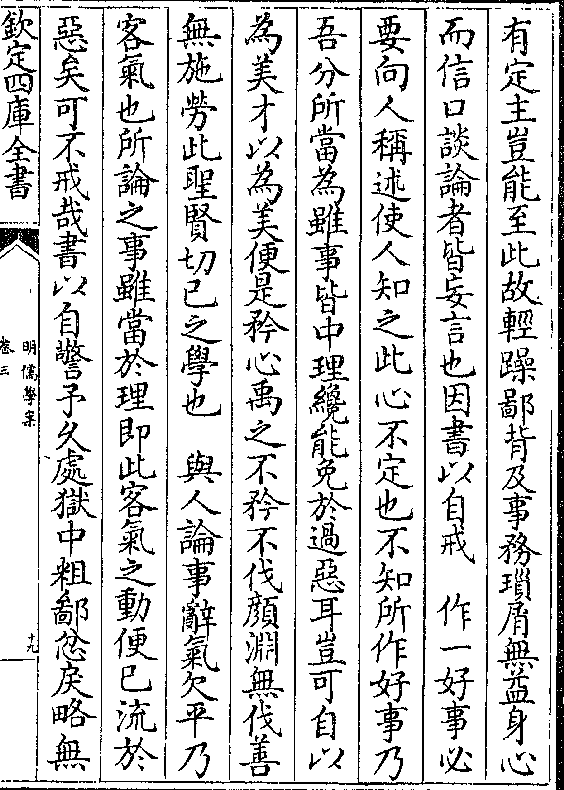 有定主豈能至此故輕躁鄙背及事務瑣屑無益身心
而信口談論者皆妄言也因書以自戒　作一好事必
要向人稱述使人知之此心不定也不知所作好事乃
吾分所當為雖事皆中理纔能免於過惡耳豈可自以
為美才以為美便是矜心禹之不矜不伐顔淵無伐善
無施勞此聖賢切已之學也　與人論事辭氣欠平乃
客氣也所論之事雖當於理即此客氣之動便已流於
惡矣可不戒哉書以自警予久處獄中粗鄙忿戾略無
欽定四庫全書
明儒學案
卷三
十九